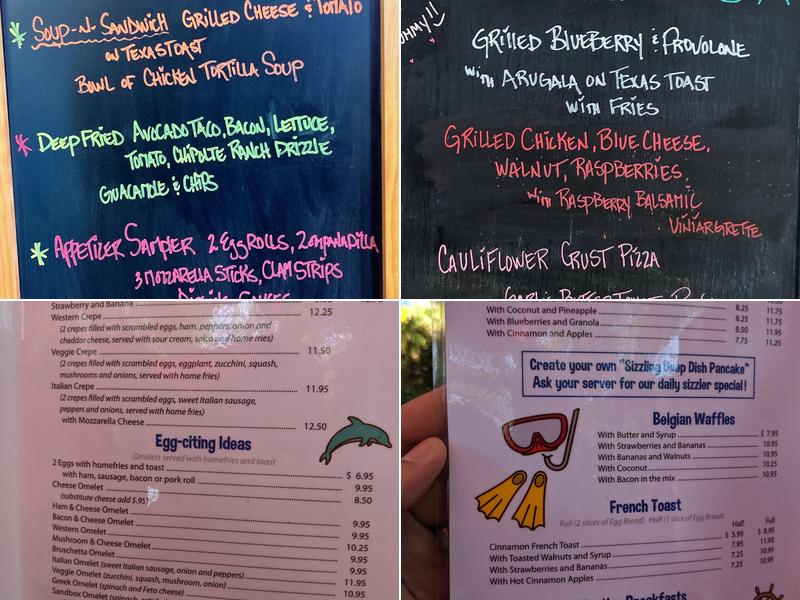 SOUP-N-SANDWICH GRILLED CHEESE & TOMATO
ON TEXAS TOAST
BOWL OF CHICKEN TORTILLA SOUP
DEEP FRIED AVOCADO TACO, BACON, LETTUCE,
TOMATO, CHIPOLTE RANCH DRIZZLE
GUACAMOLE & CHIPS
APPETIZER SAMPLER 2 EGG ROLLS, 2 EMPANADILLA
3 MOZZARELLA STICKS, CLAM STRIPS
GRILLED BLUEBERRY & PROVOLONE
WITH ARUGALA ON TEXAS TOAST
WITH FRIES
GRILLED CHICKEN, BLUE CHEESE,
WALNUT, RASPBERRIES
WITH RASPBERRY BALSAMIC
VINIARGRETTE
CAULIFLOWER CRUST PIZZA
Strawberry and Banana
Western Crepe 12.25
(2 crepes filled with scrambled eggs, ham, peppers, onion and
cheddar cheese, served with sour cream, salsa and home rries)
Veggie Crepe 11.50
(2 crepes filled with scrambled eggs, eggplant, zucchini, squash,
mushrooms and onions, served with home fries)
Italian Crepe 11.95
(2 crepes filled with scrambled eggs, sweet Italian sausage,
peppers and onions, served with home fries)
with Mozzarella Cheese 12.50
Egg-citing Ideas
Omelets served with homefries and toast
2 Eggs with homefries and toast $ 6.95
with ham, sausage, bacon or pork roll 9.95
Cheese Omelet 8.50
(substitute cheese add $.95)
Ham & Cheese Omelet 9.95
Bacon & Cheese Omelet 9.95
Western Omelet 10.25
Mushroom & Cheese Omelet 9.95
Bruschetta Omelet 9.95
Italian Omelet (sweet Italian sausage, onion and peppers) 11.95
Veggie Omelet (zucchini, squash, mushroom, onion) 10.95
Greek Omelet (spinach and Feta cheese) 10.95
Sandbox Omelet
With Coconut and Pineapple 8.25 11.75
With Blueberries and Granola 8.25 11.75
With Cinnamon and Apples 8.50 11.95
7.75 11.25
Create your own "Sizzling Deep Dish Pancake"
Ask your server for our daily sizzler special!
Belgian Waffles
With Butter and Syrup $ 7.95
With Strawberries and Bananas 10.95
With Bananas and Walnuts 10.95
With Coconut 10.25
With Bacon in the mix 10.95
French Toast
Full (2 slices of Egg Bread) Half (1 slice of Egg Bread) Half Full
Cinnamon French Toast $ 5.95 $ 8.95
With Toasted Walnuts and Syrup 7.95 11.95
With Strawberries and Bananas 7.25 10.95
With Hot Cinnamon Apples 7.25 10.95